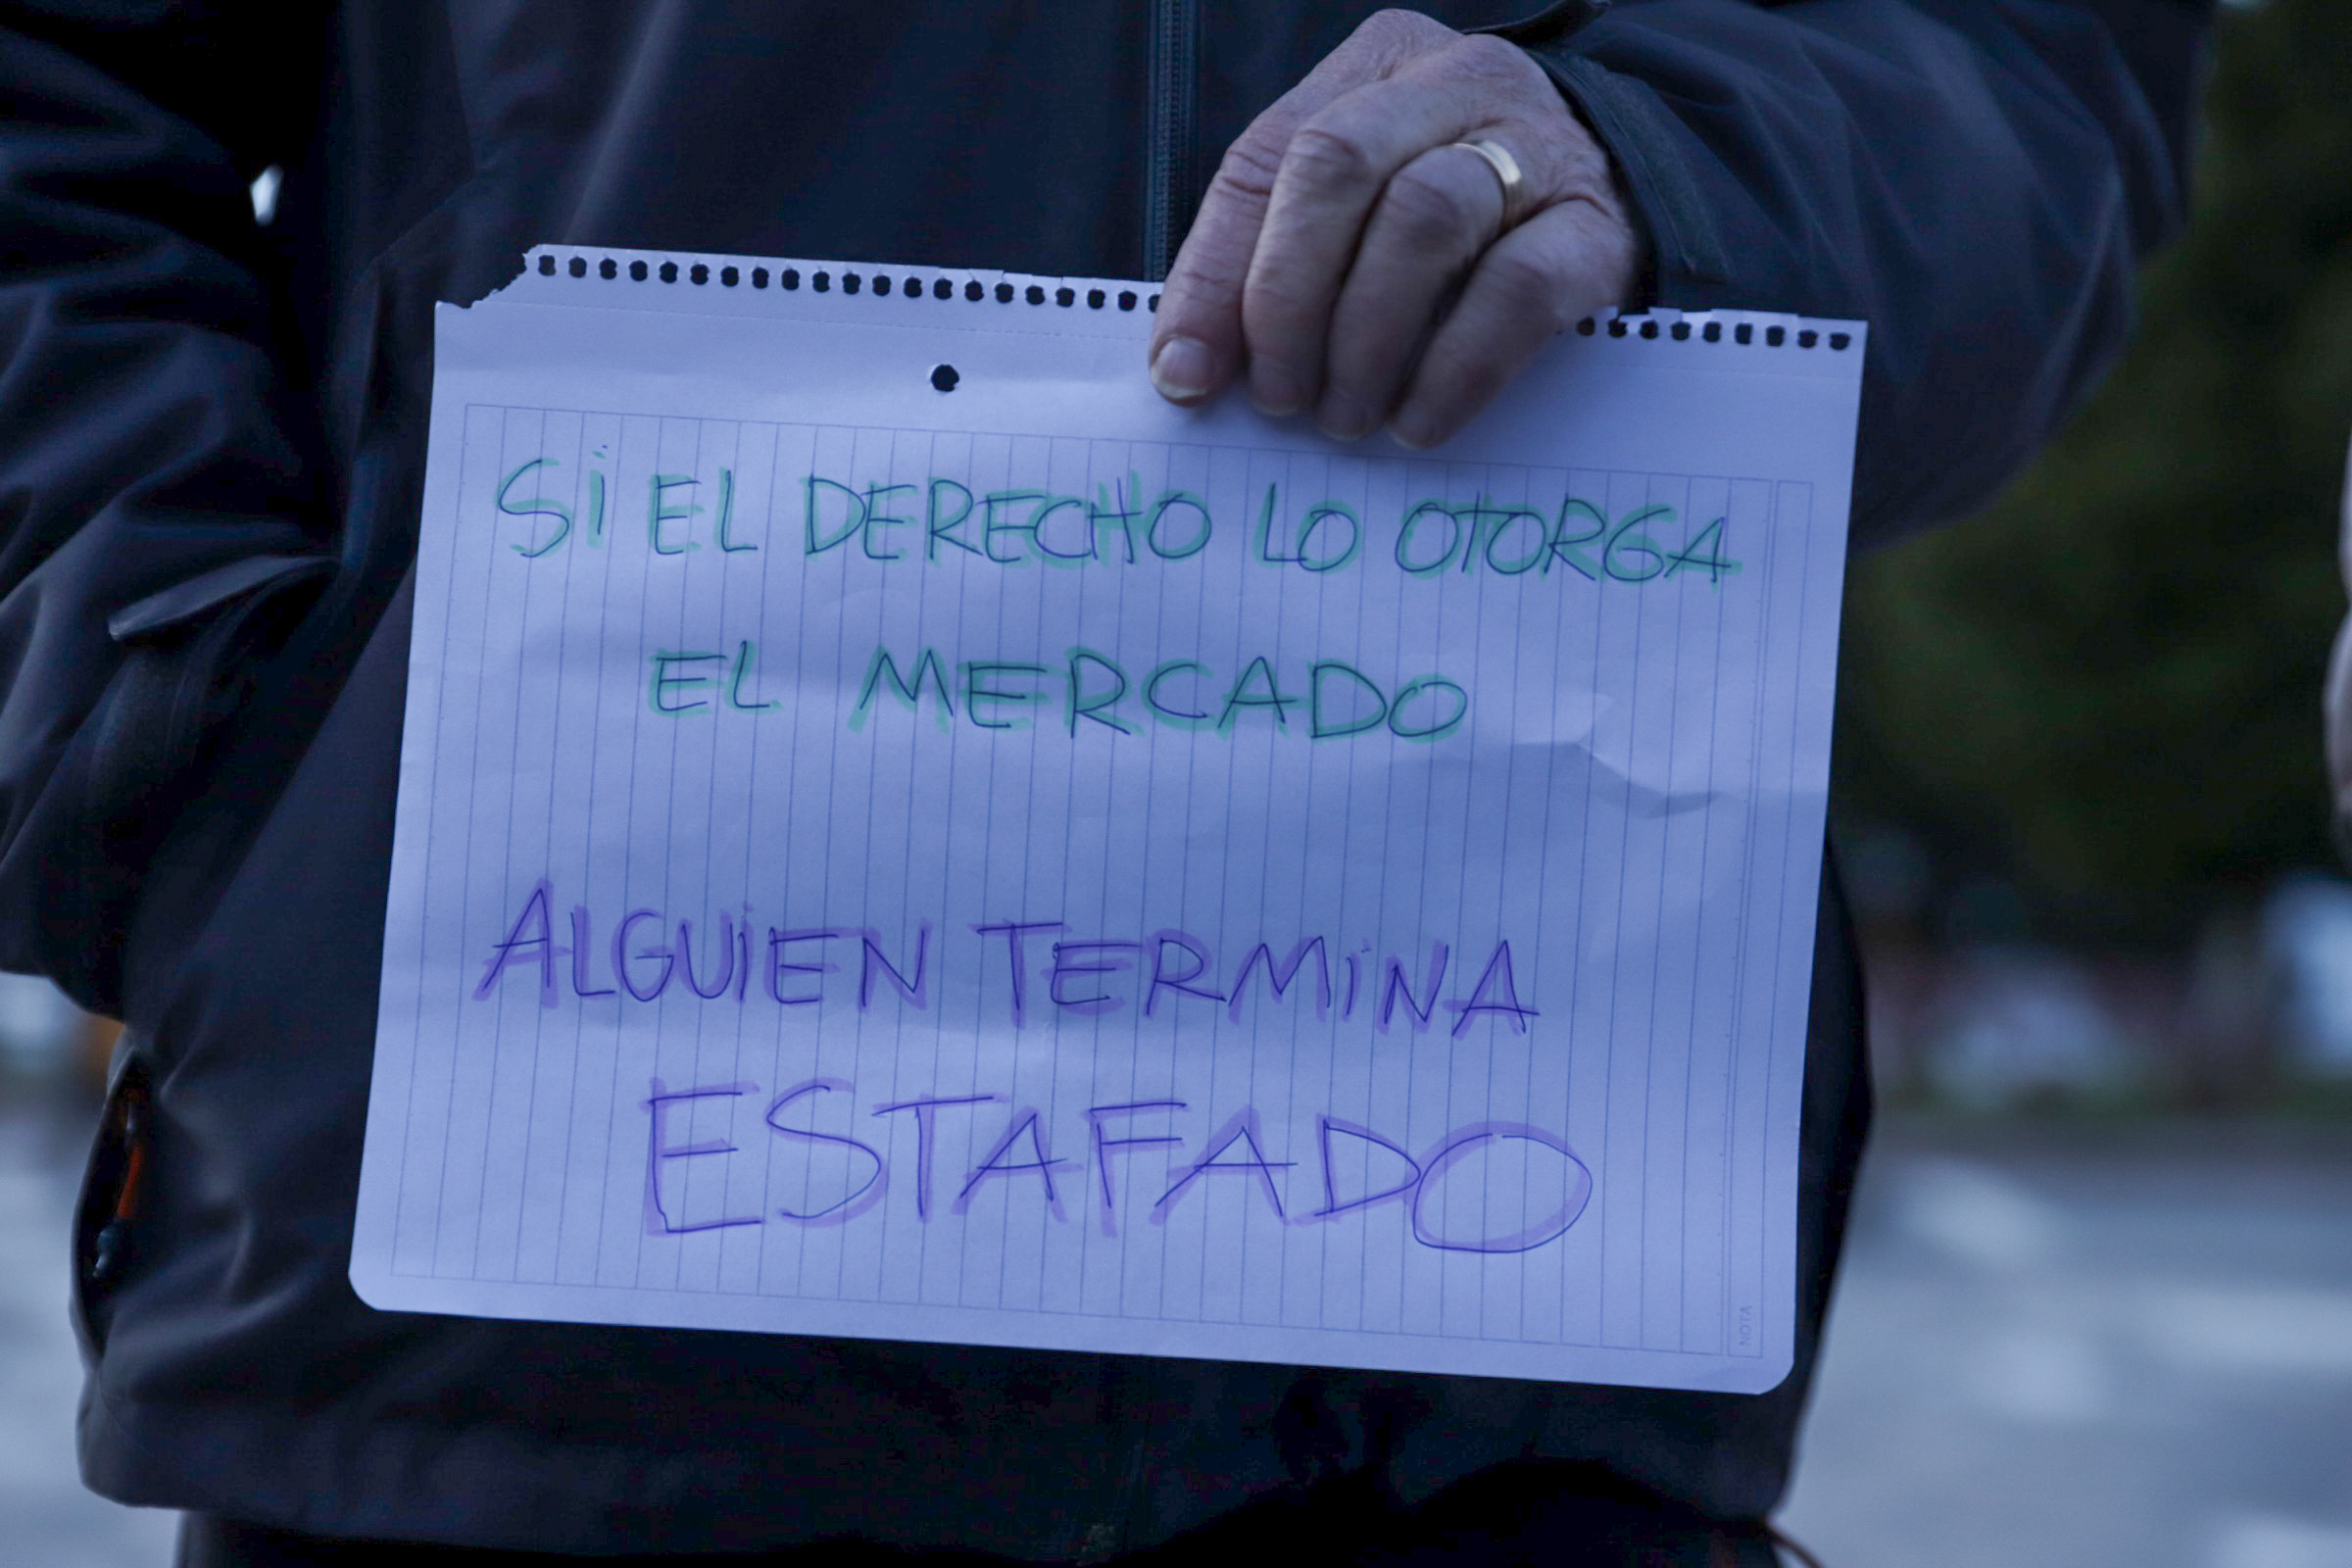 SI EL DERECHO LO OTORGA
EL MERCADO
ALGUIEN TERMINA
ESTAFADO
NOTA